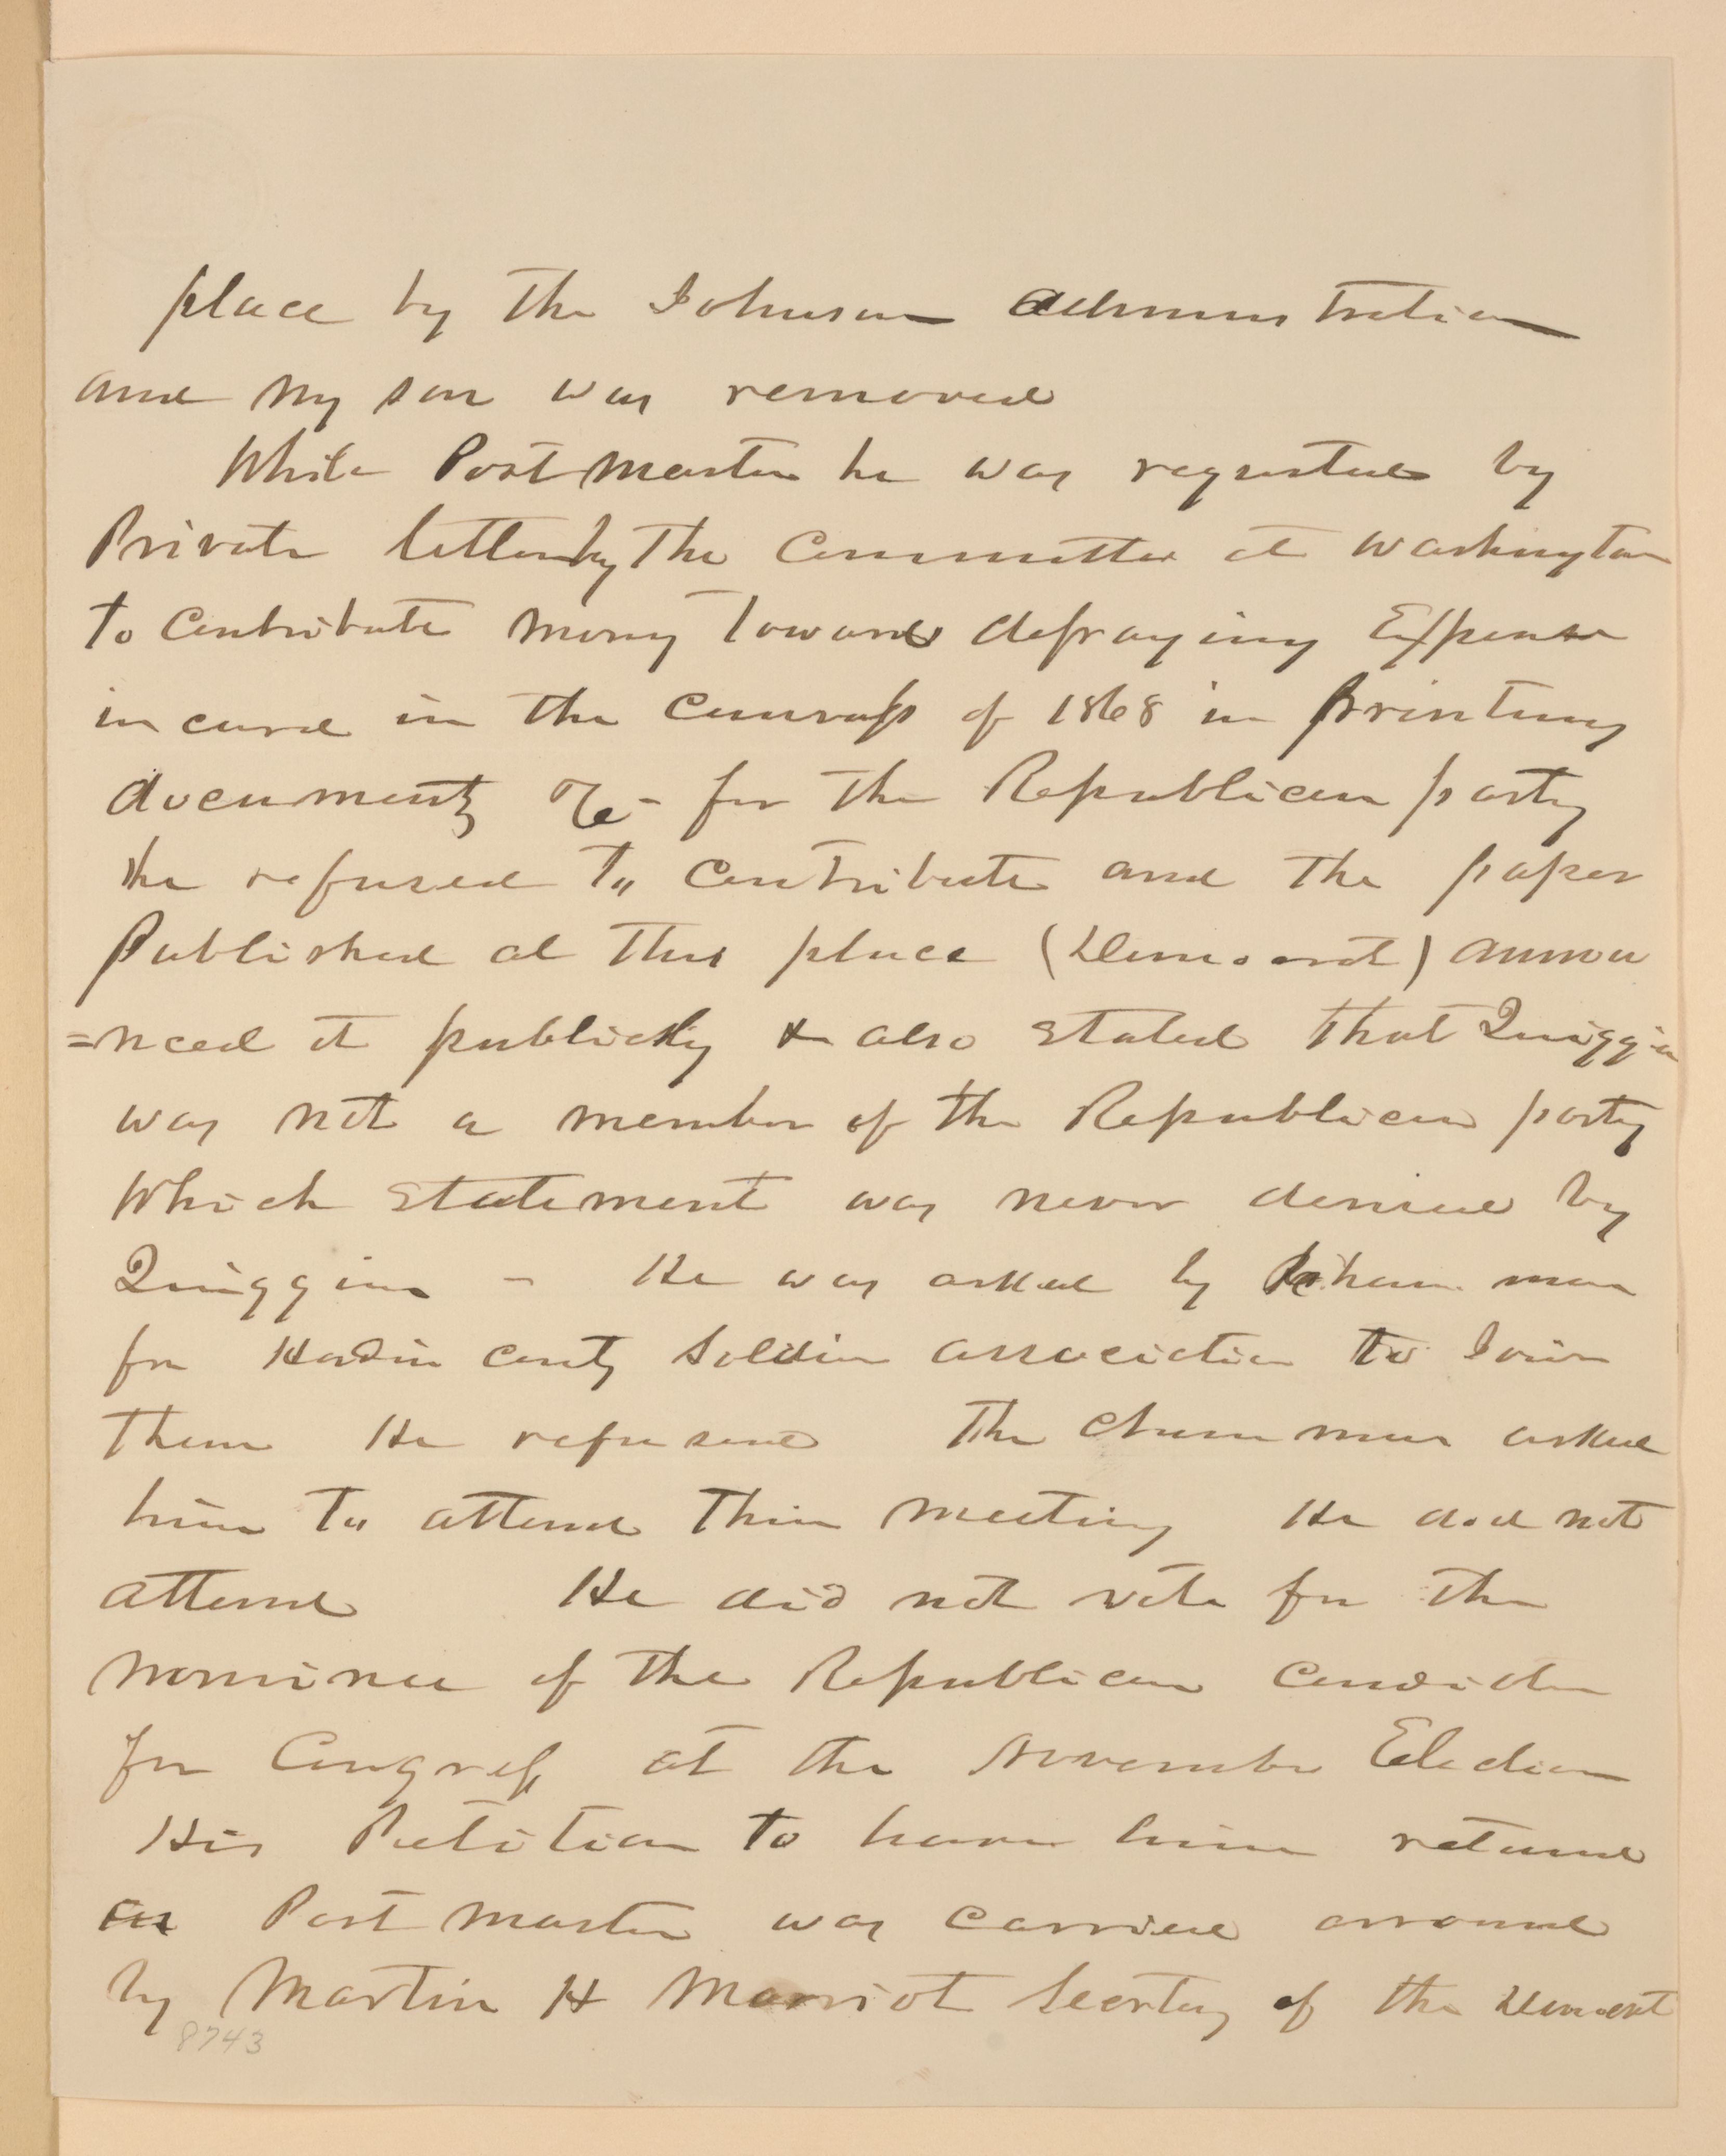 place by the Johnson administration
and my son was removed
While Post Master he was requested by
Private letter by The Committee at Washington
To Contribute money Towards defraying Expense
incured in the Canvass of 1868 in Printing
documents &c - for the Republican party
He refused To Contribute and the paper
Published at This place (Democrat) annou
=nced it publickly & also stated that Quiggin
was not a member of the Republican party
Which statement was never denied by
Quiggins - He was asked by man
for Hardin County Soldier association to Join
Them He refused The Chairman asked
him To attend Their Meeting He did not
attend He did not vote for the
nominee of the Republican Candidate
for Congress at the November Election
His Petition to have him retained
as Post Master was carried arround
by Martin H Marriot Secretary of the Democrat
8743